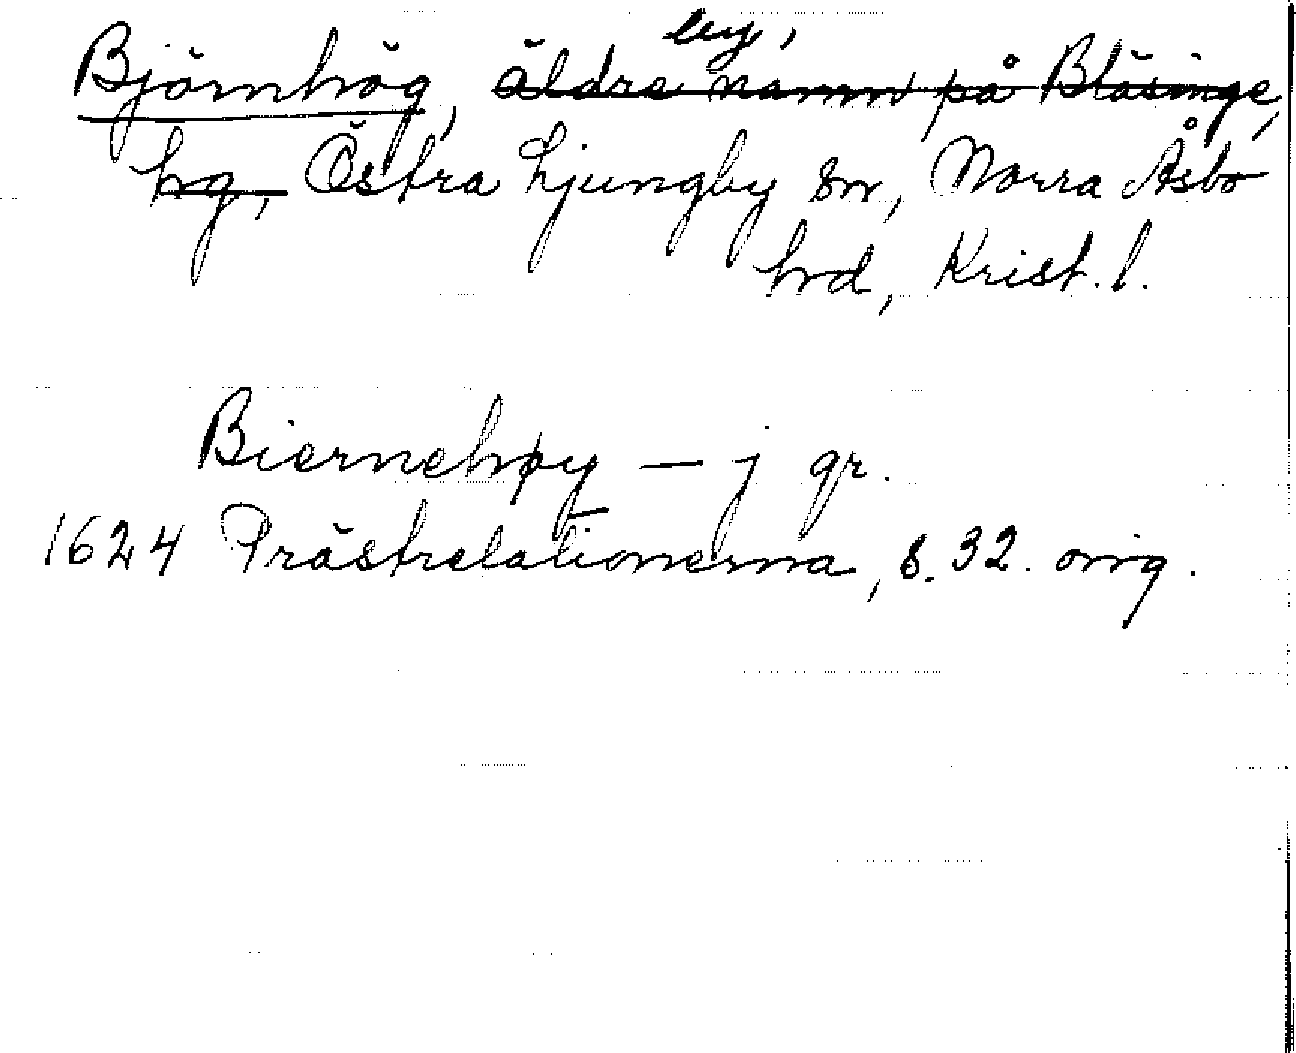 by,
Björnhög, äldre namn på Bläsinge,
hg, Östra Ljungby sn, Norra Åsbo
hd, Krist. l.
Biernehøy — j gr.
1624 Prästrelationerna, s. 32. orig.